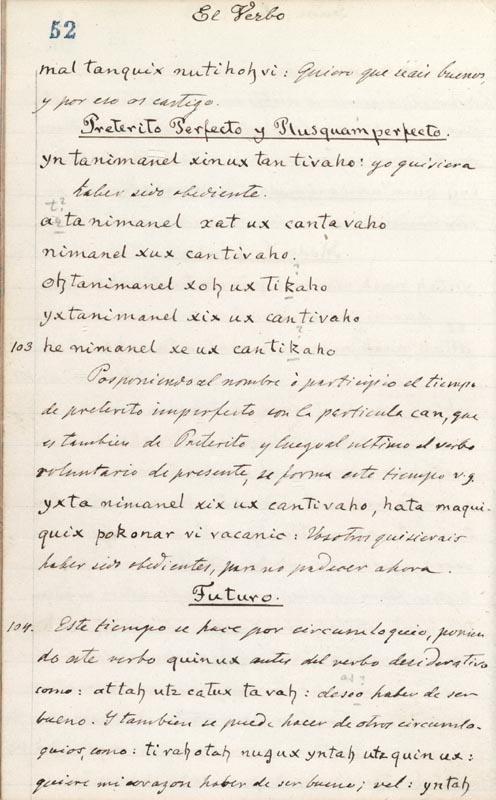 El Verbo
52
mal tanquix nutihoꜧvi: Quiero que seais buenos,
y por eso os castigo.
Preterito Perfecto y Plusquamperfecto.
yn tanimanel xinux tan tivaho: yo quisiera
haber sido obediente.
t?
at tanimanel xat ux cantavaho
nimanel xux cantivaho.
oꜧtanimanel xoꜧ ux tikaho
?
yxtanimanel xix ux cantivaho
?
103 he nimanel xe ux cantikaho
Posponiendo al nombre ò participio el tiempo
de preterito imperfecto con la particula can, que
es tambien de Preterito y luego al ultimo el verbo
voluntario de presente, se forma este tiempo v.g.
yxta nimanel xix ux cantivaho, hata maqui-
quix pokonar vi vacanic: Vosotros quisierais
haber sido obedientes, para no padecer ahora.
Futuro.
104. Este tiempo se hace por circumloquio, ponien
do este verbo quinux antes del verbo desiderativo
as?
como: at taꜧ utz catux tavaꜧ: deseo haber de ser
bueno. Y tambien se puede hacer de otros circumlo-
quios, como: tirahotaꜧ nuqux yntaꜧ utz quin ux:
quiere mi corazon haber de ser bueno; vel: yntaꜧ